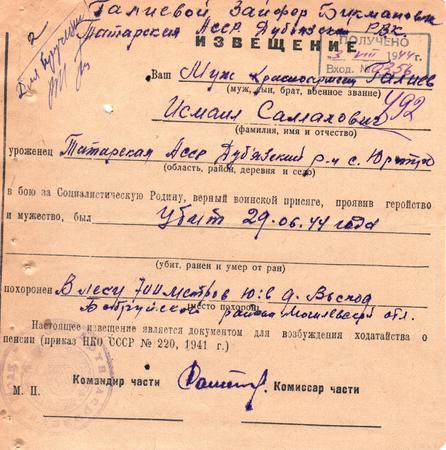 Галиевой Зайфор Бикмановне
Татарская АССР Дубъязский РВК
ИЗВЕЩЕНИЕ
ПОЛУЧЕНО
3 VIII 1944
Вход. №
2
Для вручения
Ваш Муж Красноармеец Галиев
(муж, сын, брат, военное звание)
Исмаил Салахович
492
(фамилия, имя и отчество)
уроженец Татарская АССР Дубъязский р-н с.
(область, район, деревня и село)
в бою за Социалистическую Родину, верный воинской присяге, проявив геройство
и мужество, был Убит 29.06.44 года
(убит, ранен и умер от ран)
похоронен В лесу 700 метров Ю:в д. Высход
Бобруйского района Могилевской обл.
место похорон
Настоящее извещение является документом для возбуждения ходатайства о
пенсии (приказ НКО СССР № 220, 1941 г.)
Командир части Комиссар части
М. П.